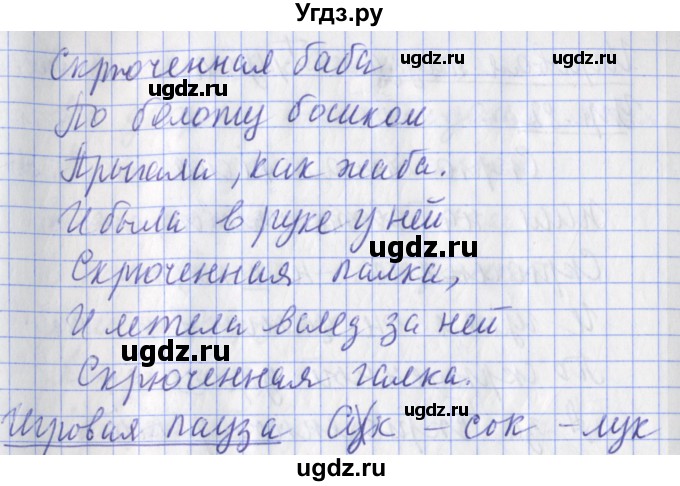 Угдз.ру
Скрюченная баба
ugdz.ru ugdz.ru
По болоту босиком
ugdz.ru
Прыгала, как жаба.
И была в руке у ней
ugdz.ru
Скрюченная палка,
И летела вслед за ней
ugdz.ru
Скрюченная галка.
Игровая пауза Сук – сок – лук
ugdz.ru
ugdz.ru